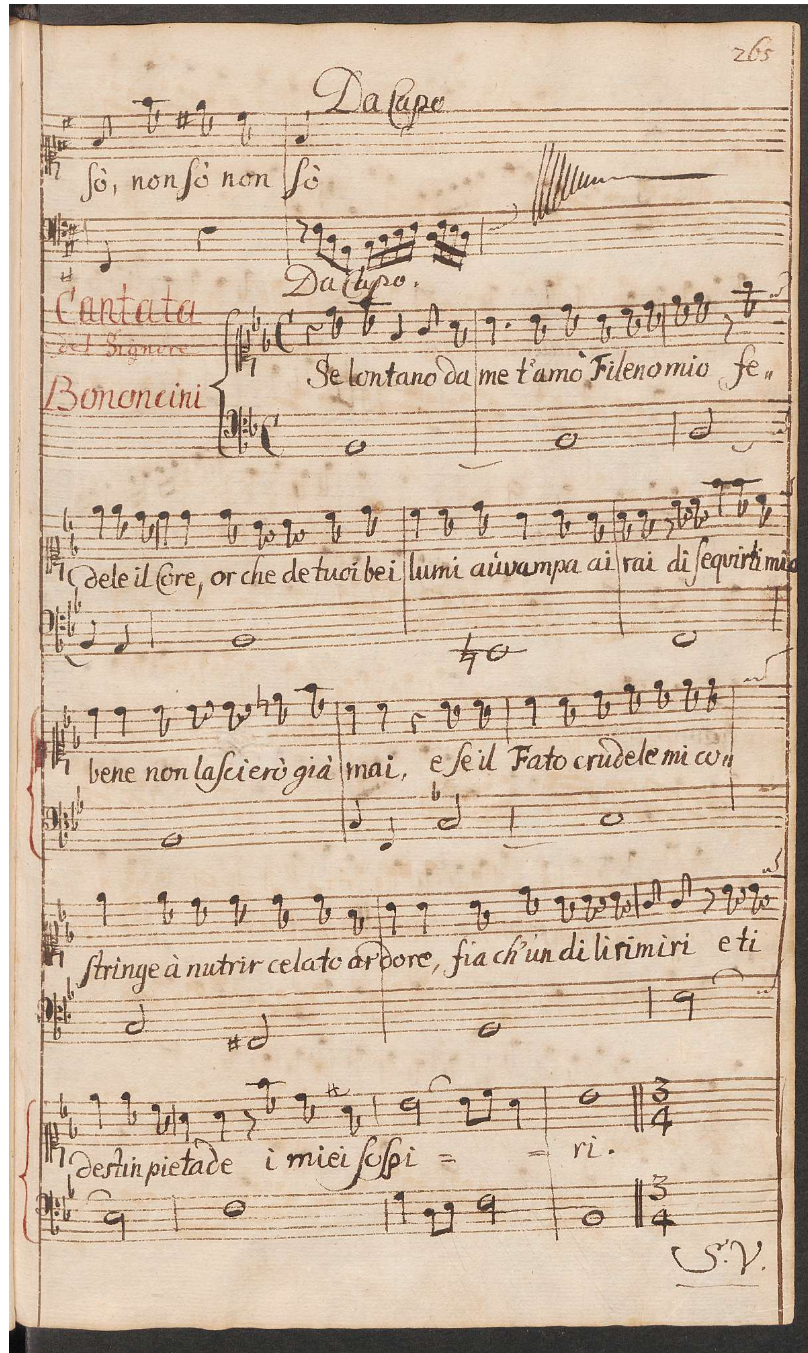 265
Da Capo
sò, non sò non sò
Da Capo.
Cantata
del Signore
Bononcini
Se lontano da me t'amò Fileno mio fe„
dele il Core, or che de tuoi bei lumi auvampa ai rai di sequirti mio
bene non lascierò già mai, e se il Fato crudele mi co„
stringe à nutrir celato ardore, fia ch'un di li rimiri e ti
destin pietade i miei sospi = = ri.
S. V.